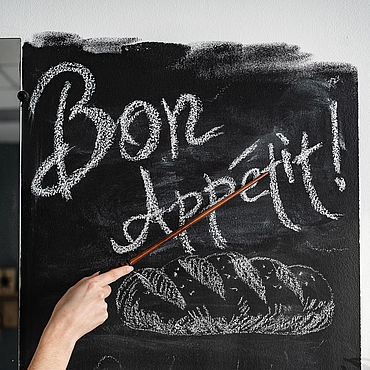 Bon
Appétit!